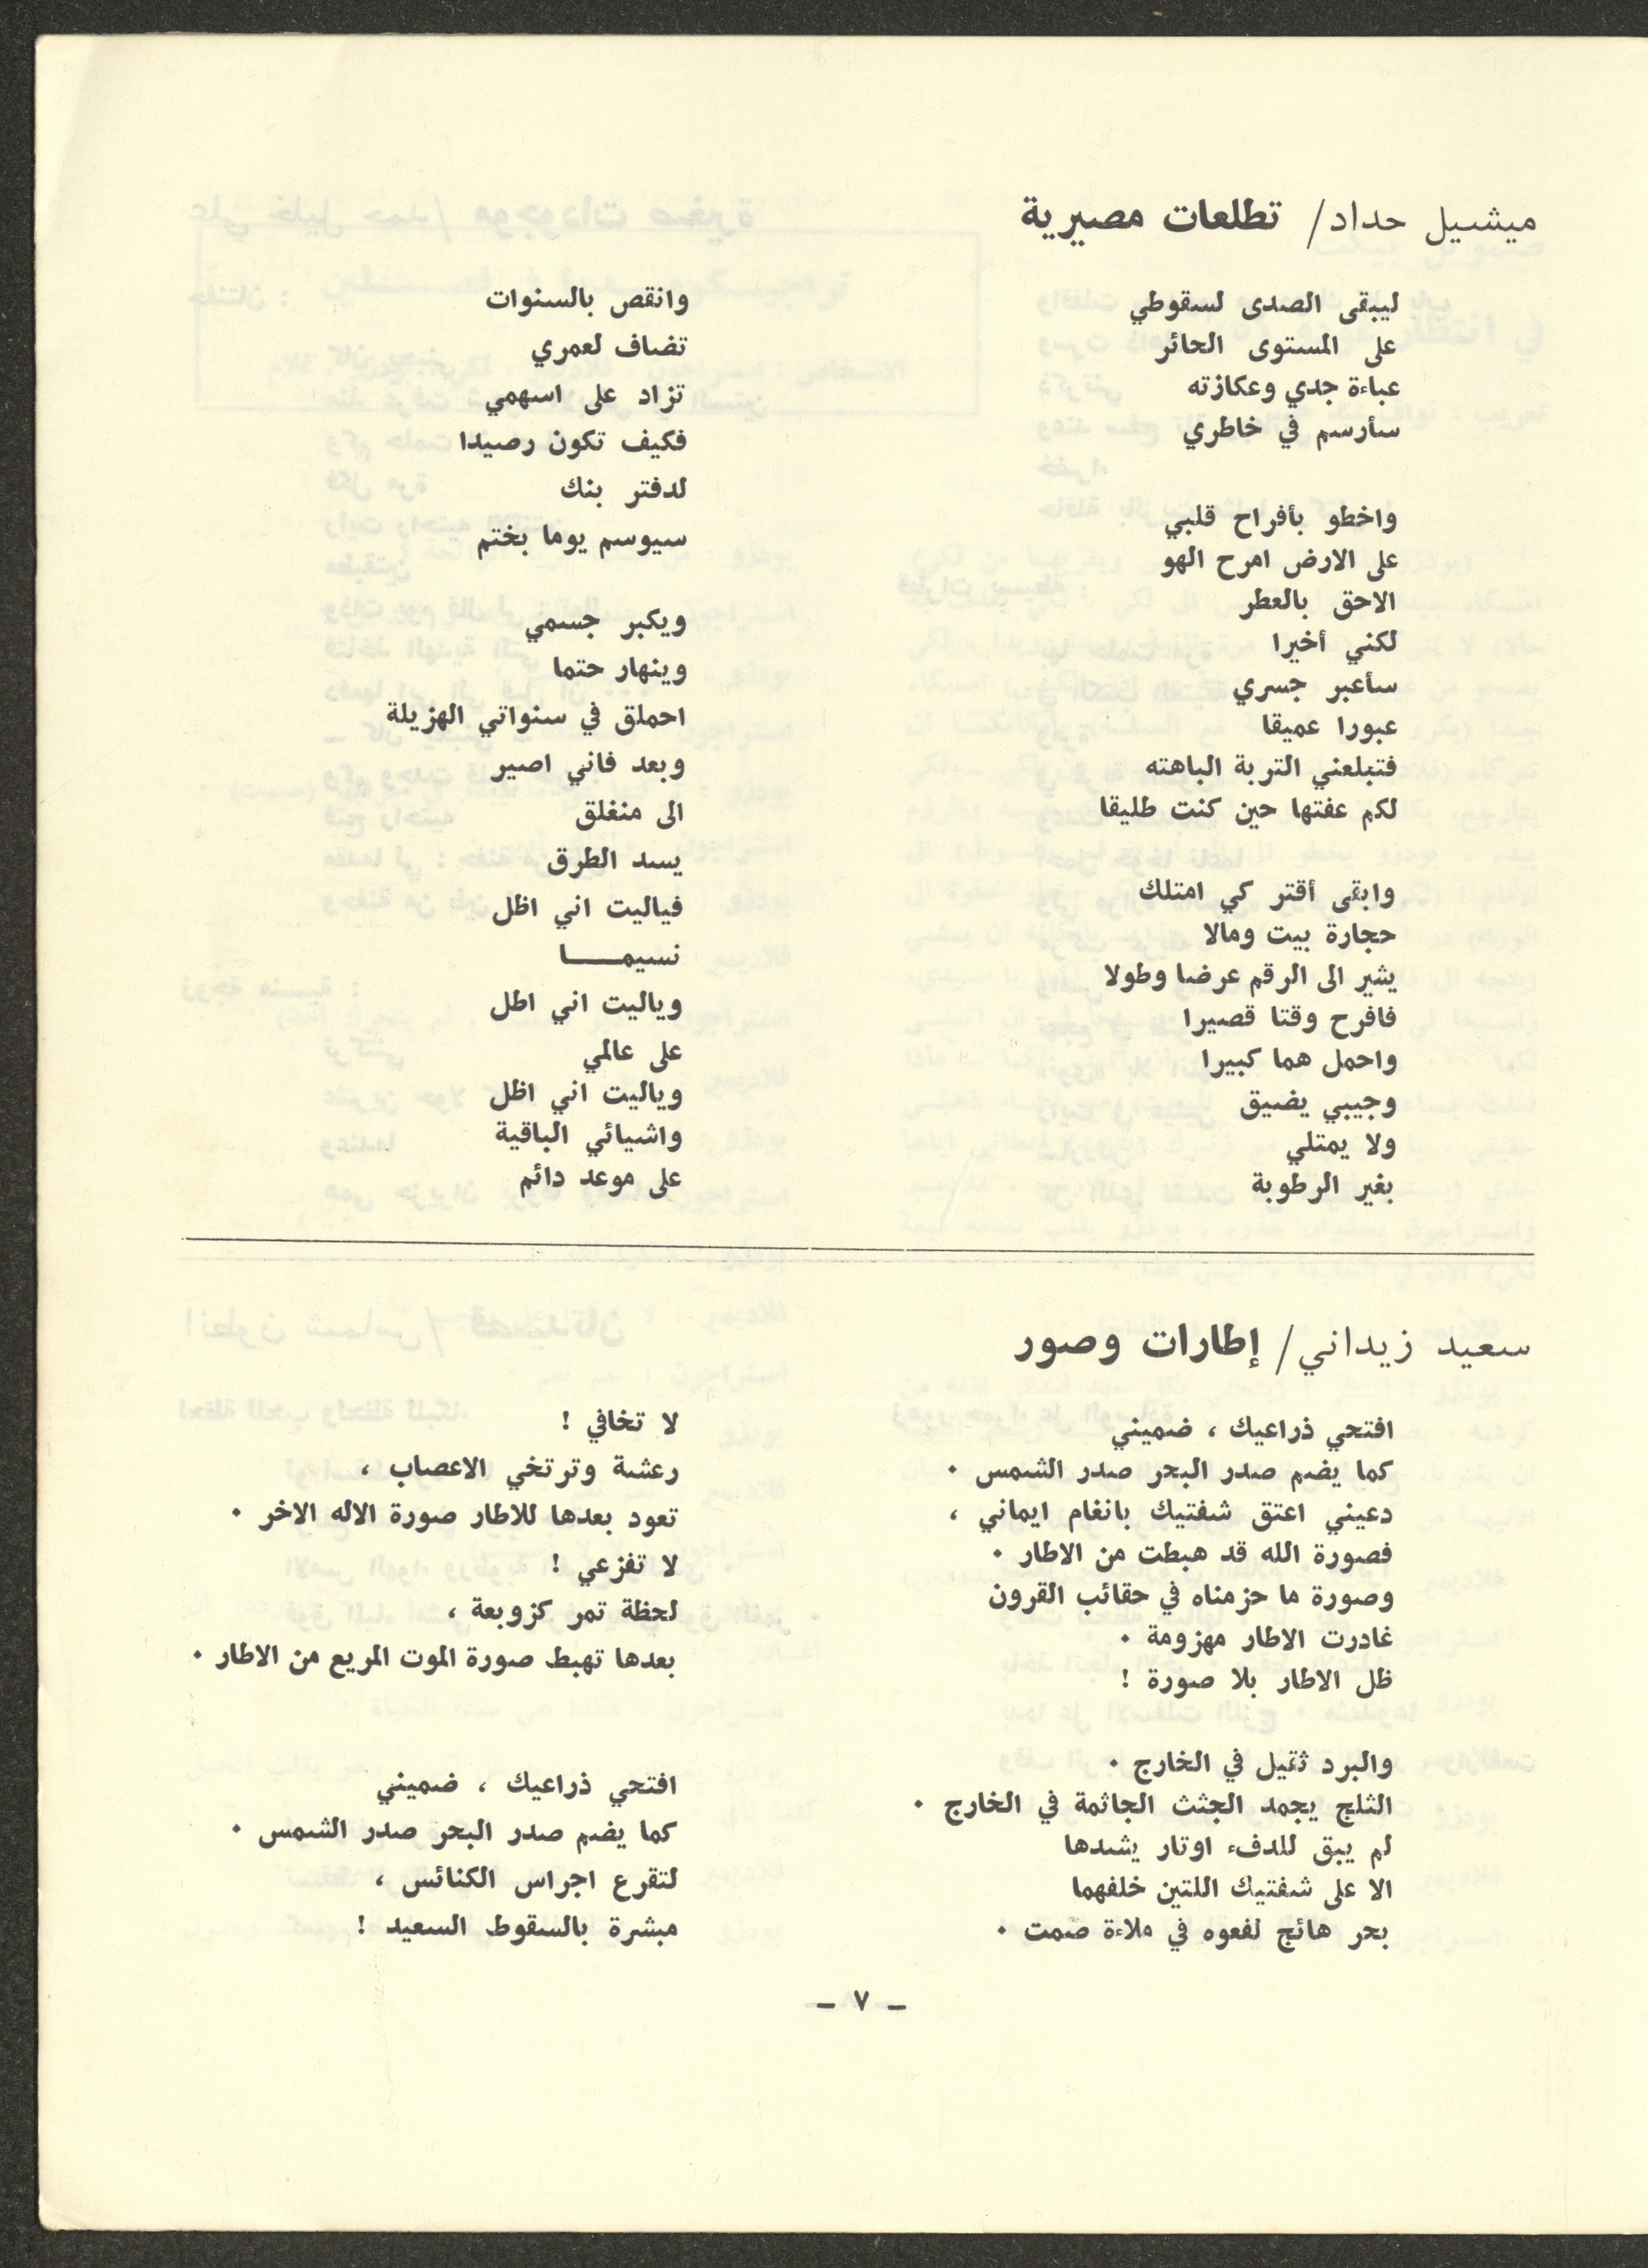 ميشيل حداد/ تطلعات مصيرية
ليبقى الصدى لسقوطي
على المستوى الحائر
عباءة جدي وعكازته
سأرسم في خاطري
واخطو بأفراح قلبي
على الارض امرح الهو
الاحق بالعطر
لكني أخيرا
سأعبر جسري
عبورا عميقا
فتبلعني التربة الباهته
لكم عفتها حين كنت طليقا
وابقى أقتر كي امتلك
حجارة بيت ومالا
يشير الى الرقم عرضا وطولا
فافرح وقتا قصيرا
واحمل هما كبيرا
وجيبي يضيق
ولا يمتلي
بغير الرطوبة
وانقص بالسنوات
تضاف لعمري
تزاد على اسهمي
فكيف تكون رصيدا
لدفتر بنك
سيوسم يوما بختم
ويكبر جسمي
وينهار حتما
احملق في سنواتي الهزيلة
وبعد فاني اصير
الى منغلق
يسد الطرق
فياليت اني اظل
نسيمـــــا
وياليت اني اطل
على عالمي
وياليت اني اظل
واشيائي الباقية
على موعد دائم
سعيد زيداني/ إطارات وصور
افتحي ذراعيك ، ضميني
كما يضم صدر البحر صدر الشمس ٠
دعيني اعتق شفتيك بانغام ايماني ،
فصورة الله قد هبطت من الاطار ٠
وصورة ما حزمناه في حقائب القرون
غادرت الاطار مهزومة ٠
ظل الاطار بلا صورة !
والبرد ثقيل في الخارج ٠
الثلج يجمد الجثث الجاثمة في الخارج ٠
لم يبق للدفء اوتار يشدها
الا على شفتيك اللتين خلفهما
بحر هائج لفعوه في ملاءة صمت ٠
لا تخافي !
رعشة وترتخي الاعصاب ،
تعود بعدها للاطار صورة الاله الاخر ٠
لا تفزعي !
لحظة تمر كزوبعة ،
بعدها تهبط صورة الموت المريع من الاطار ٠
افتحي ذراعيك ، ضميني
كما يضم صدر البحر صدر الشمس ٠
لتقرع اجراس الكنائس ،
مبشرة بالسقوط السعيد !
– ٧ –